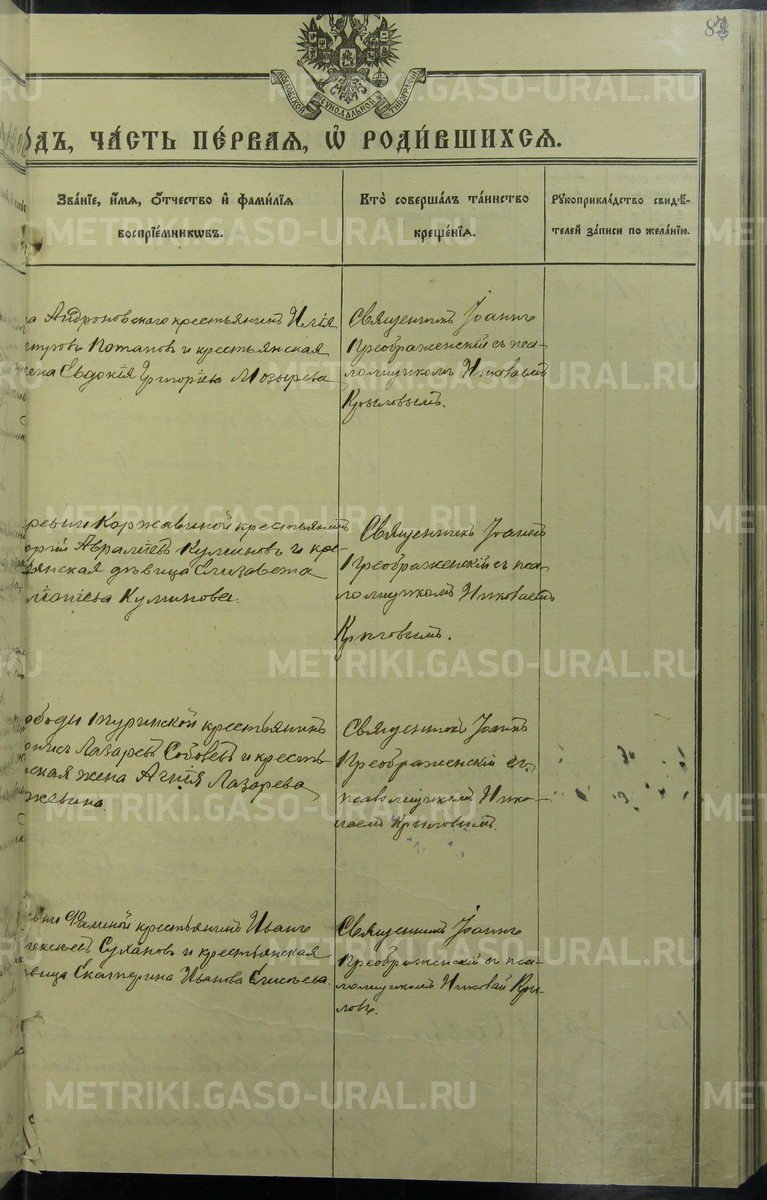 83
МОСКОВСКОЙ СѴНОДАЛЬНОЙ ТИПОГРАФІИ
ОДЪ, ЧА́СТЬ ПЕ́РВАЯ, Ѡ РОДИ́ВШИХСЯ.
Зва́нїе, и́мя, о́тчество и҆ фами́лїя
воспрїе́мникѡвъ.
Кто̀ соверша́лъ та́инство
креще́нїя.
Рꙋкоприкла́дство свидѣ́-
телей за́писи по жела́нїю.
Андроновскаго крестьянинъ Илія
Потаповъ и крестьянская
Евдокія Григоріева Мозырева
Священникъ Іоаннъ
Преображенскій съ пса-
ломщикомъ Николаемъ
Крыловымъ.
ревни Коржавиной крестьянинъ
оргій Кулминовъ и кре-
янская дѣвица Елизавета
Кулминова.
Священникъ Іоаннъ
Преображенскій съ пса-
ломщикомъ Николаемъ
Крыловымъ.
ободы Туринской крестьянинъ
Лазаревъ и кресть-
ская жена Агнія Лазарева
Священникъ Іоаннъ
Преображенскій съ
псаломщикомъ Нико-
лаемъ Крыловымъ.
вни Фаминой крестьянинъ Иванъ
Сухановъ и крестьянская
вица Екатерина Иванова Елисѣева.
Священникъ Іоаннъ
Преображенскій съ пса-
ломщикомъ Николай Кры-
ловъ.
METRIKI.GASO-URAL.RU